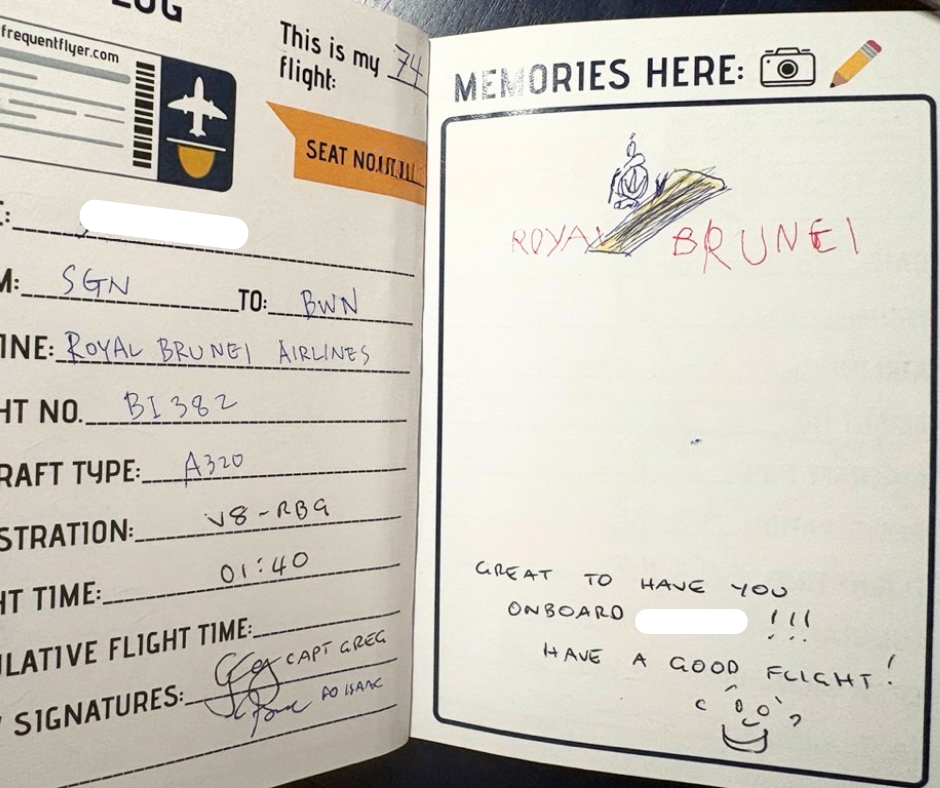 frequentflyer.com
This is my 74
flight:
SEAT NO.
SGN TO: BWN
ROYAL BRUNEI AIRLINES
HT NO. BI 382
RAFT TYPE: A320
STRATION: V8-RBG
HT TIME: 01:40
LATIVE FLIGHT TIME:
CAPT GREG
SIGNATURES: FO ISAAC
MEMORIES HERE:
ROYAL BRUNEI
GREAT TO HAVE YOU
ONBOARD !!!
HAVE A GOOD FLIGHT!